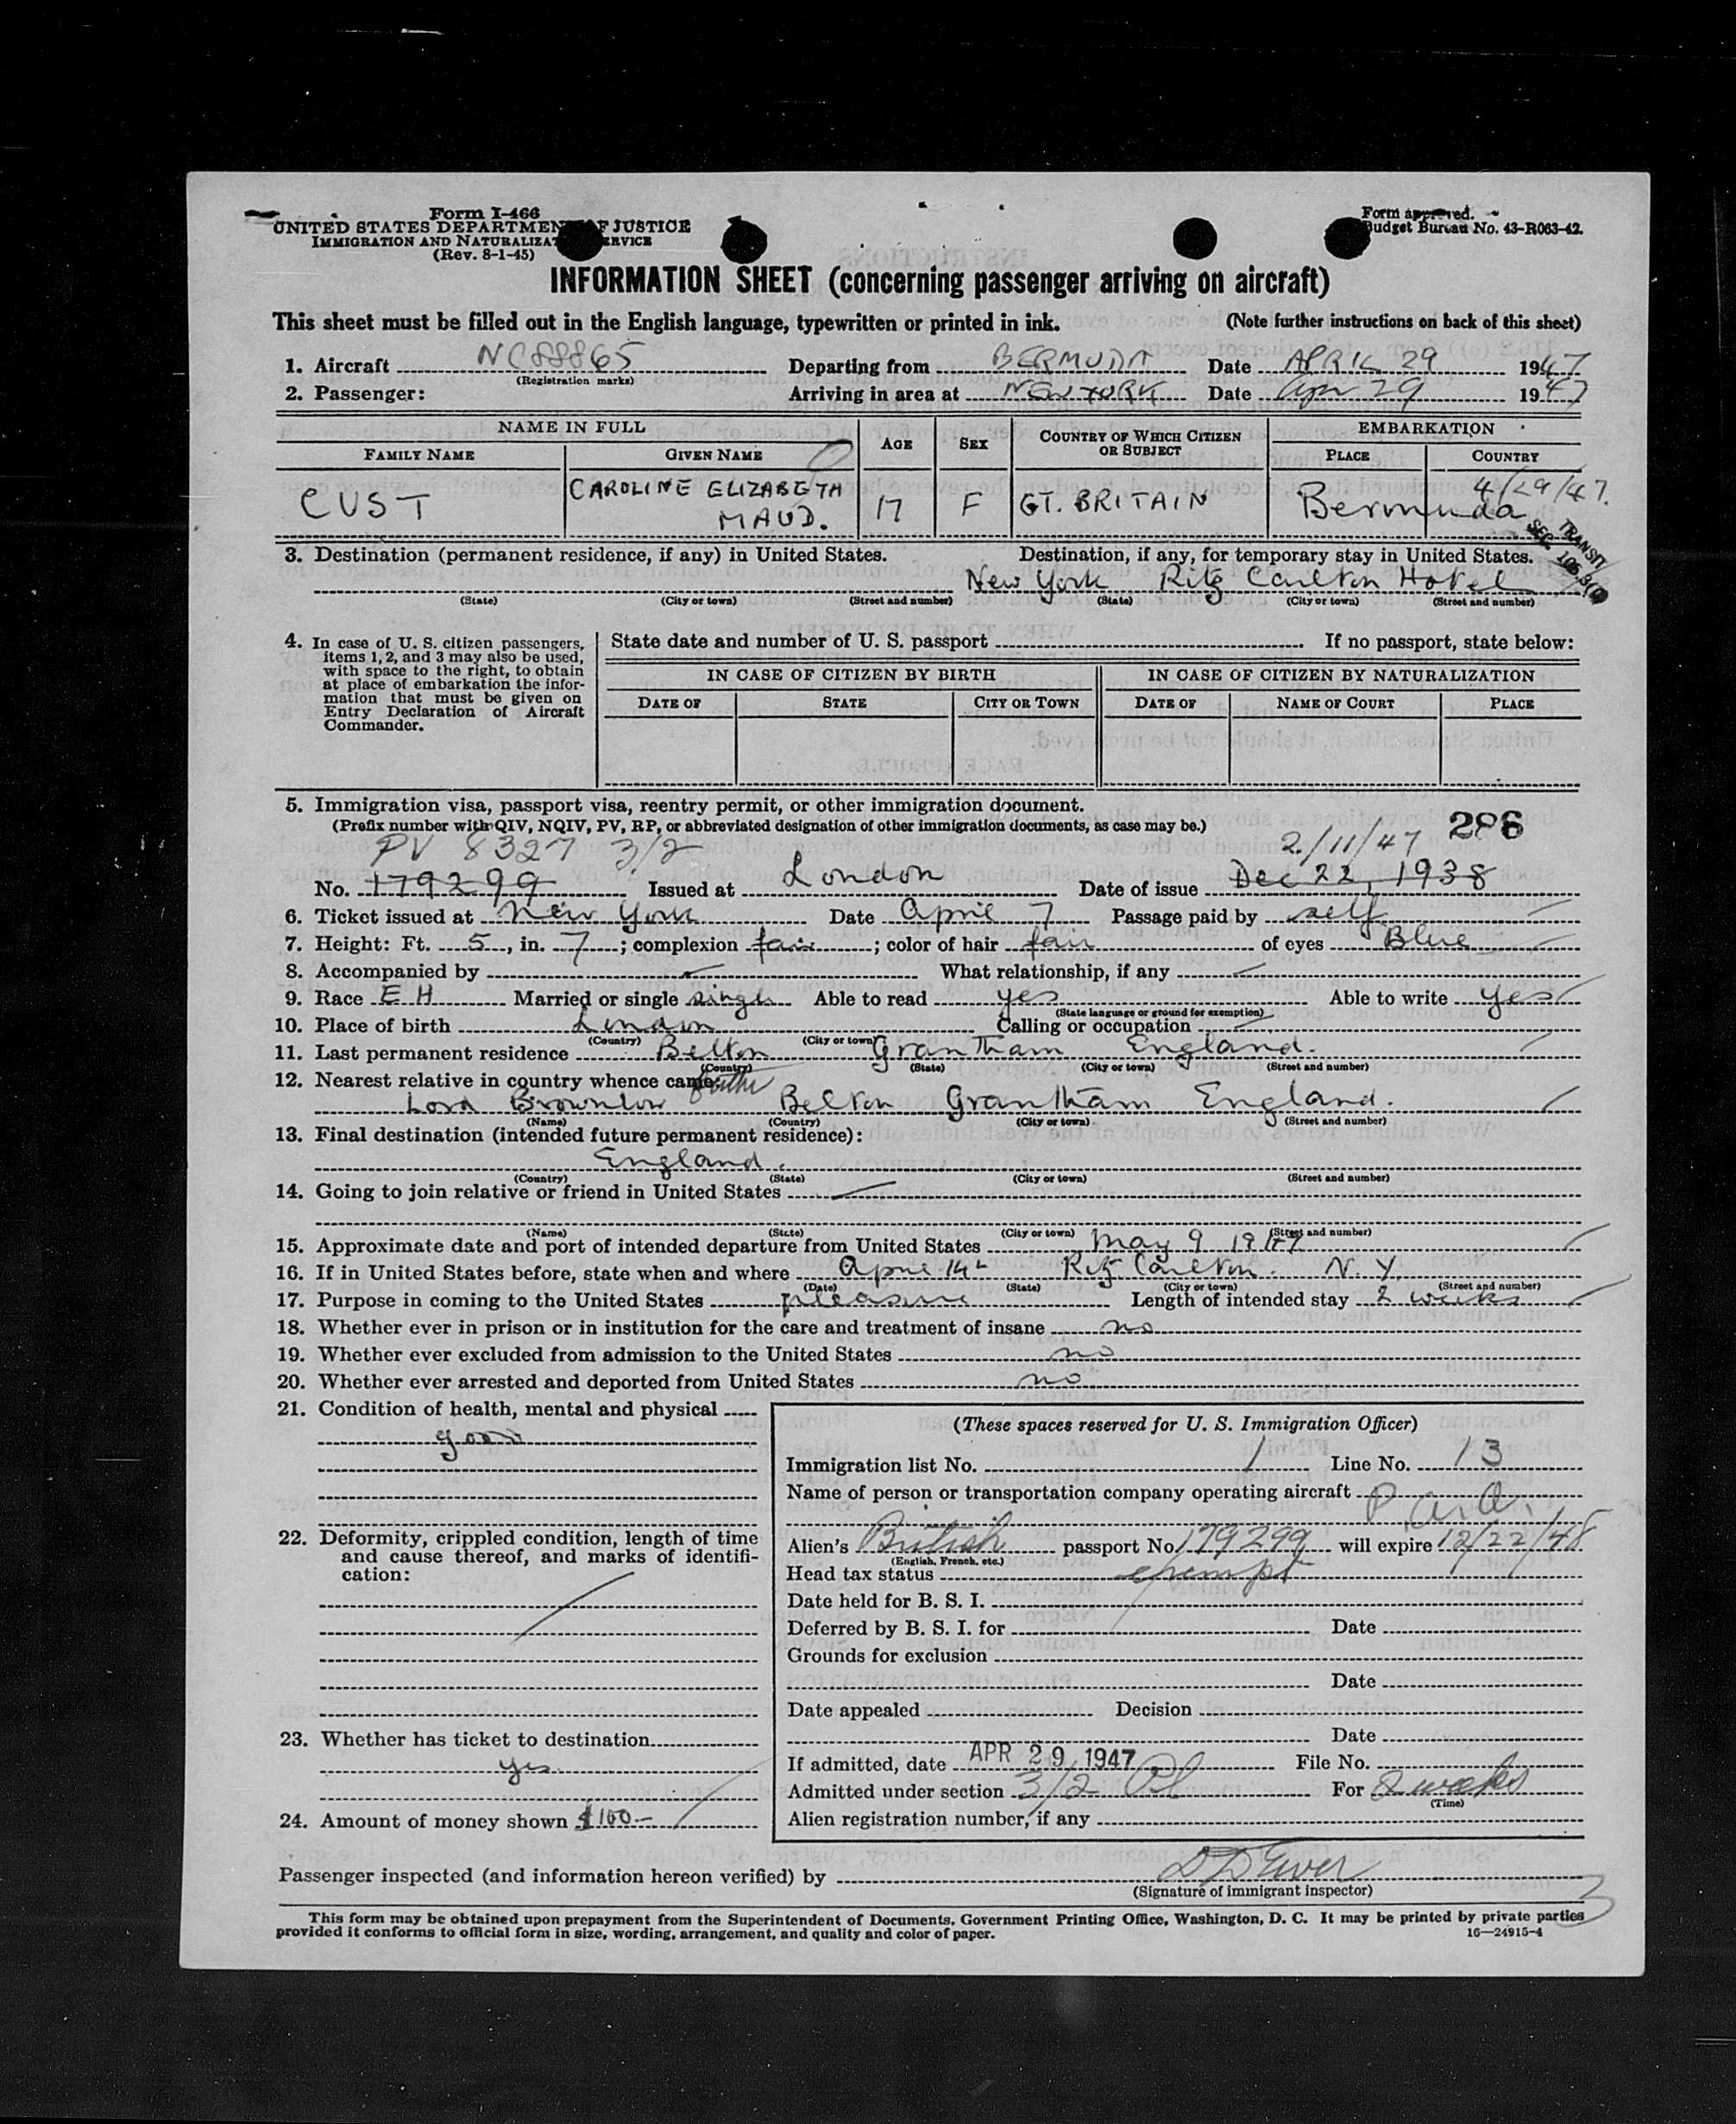 Form I-466
UNITED STATES DEPARTMENT OF JUSTICE
IMMIGRATION AND NATURALIZATION SERVICE
(Rev. 8-1-45)
Form approved.
Budget Bureau No. 43-R063-42.
INFORMATION SHEET (concerning passenger arriving on aircraft)
This sheet must be filled out in the English language, typewritten or printed in ink. (Note further instructions on back of this sheet)
1. Aircraft NC88865 Departing from BERMUDA Date APRIL 29 1947
(Registration marks)
2. Passenger: Arriving in area at NEW YORK Date Apr 29 1947
NAME IN FULL AGE SEX COUNTRY OF WHICH CITIZEN OR SUBJECT EMBARKATION
FAMILY NAME GIVEN NAME PLACE COUNTRY
4/29/47.
CUST CAROLINE ELIZABETH MAUD. 17 F GT. BRITAIN Bermuda
TRANSIT
SEC. 105.3(
3. Destination (permanent residence, if any) in United States. Destination, if any, for temporary stay in United States.
New York Ritz Carlton Hotel
(State) (City or town) (Street and number) (State) (City or town) (Street and number)
4. In case of U. S. citizen passengers, items 1, 2, and 3 may also be used, with space to the right, to obtain at place of embarkation the information that must be given on Entry Declaration of Aircraft Commander.
State date and number of U. S. passport If no passport, state below:
IN CASE OF CITIZEN BY BIRTH IN CASE OF CITIZEN BY NATURALIZATION
DATE OF STATE CITY OR TOWN DATE OF NAME OF COURT PLACE
5. Immigration visa, passport visa, reentry permit, or other immigration document.
(Prefix number with QIV, NQIV, PV, RP, or abbreviated designation of other immigration documents, as case may be.) 286
PV 8327 3/2 2/11/47
No. 179299 Issued at London Date of issue Dec 22, 1938
6. Ticket issued at New York Date April 7 Passage paid by self
7. Height: Ft. 5, in. 7; complexion fair; color of hair fair of eyes Blue
8. Accompanied by What relationship, if any
9. Race EH Married or single single Able to read yes Able to write yes
(State language or ground for exemption)
10. Place of birth London Calling or occupation
(Country) (City or town)
11. Last permanent residence Belton Grantham England.
(Country) (State) (City or town) (Street and number)
12. Nearest relative in country whence came: father
Lord Brownlow Belton Grantham England.
(Name) (Country) (City or town) (Street and number)
13. Final destination (intended future permanent residence):
England.
(Country) (State) (City or town) (Street and number)
14. Going to join relative or friend in United States
(Name) (State) (City or town) (Street and number)
15. Approximate date and port of intended departure from United States May 9 1947
16. If in United States before, state when and where April 14 Ritz Carlton. N. Y.
(Date) (State) (City or town) (Street and number)
17. Purpose in coming to the United States pleasure Length of intended stay 2 weeks
18. Whether ever in prison or in institution for the care and treatment of insane no
19. Whether ever excluded from admission to the United States no
20. Whether ever arrested and deported from United States no
21. Condition of health, mental and physical
good
22. Deformity, crippled condition, length of time and cause thereof, and marks of identification:
23. Whether has ticket to destination
yes.
24. Amount of money shown $100-
(These spaces reserved for U. S. Immigration Officer)
Immigration list No. 1 Line No. 13
Name of person or transportation company operating aircraft P.A.A.
Alien's British passport No. 179299 will expire 12/22/48
(English, French, etc.)
Head tax status exempt
Date held for B. S. I.
Deferred by B. S. I. for Date
Grounds for exclusion
Date
Date appealed Decision
Date
If admitted, date APR 29 1947 File No.
Admitted under section 3/2 For 2 weeks
(Time)
Alien registration number, if any
Passenger inspected (and information hereon verified) by
(Signature of immigrant inspector)
This form may be obtained upon prepayment from the Superintendent of Documents, Government Printing Office, Washington, D. C. It may be printed by private parties
provided it conforms to official form in size, wording, arrangement, and quality and color of paper. 16—24915-4